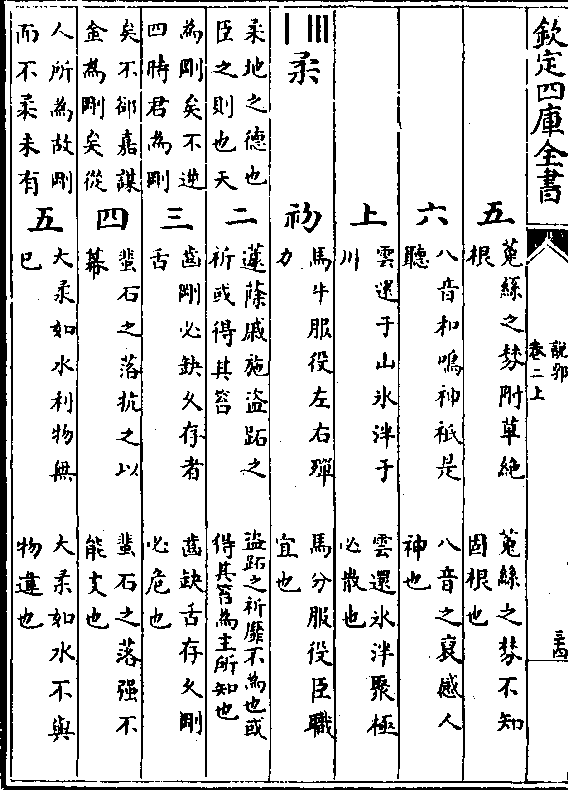 欽定四庫全書
說郛
卷二上
三四
五
菟絲之棼附草絕
根
菟絲之棼不知
固根也
六
八音和鳴神祇是
聽
八音之哀感人
神也
上
雲還于山氷泮于
川
雲還氷泮聚極
必散也
柔
初
馬牛服役左右殫
力
馬分服役臣職
宜也
柔地之德也
臣之則也天
二
蘧蒢戚施盜跖之
祈或得其笞
盜跖之祈靡不為也或
得其笞為主所知也
為剛矣不逆
四時君為剛
三
齒剛必缺久存者
舌
齒缺舌存久剛
必危也
矣不郤嘉謀
金為剛矣從
四
蜚石之落抗之以
幕
蜚石之落强不
能支也
人所為故剛
而不柔未有
五
大柔如水利物無
已
大柔如水不與
物違也